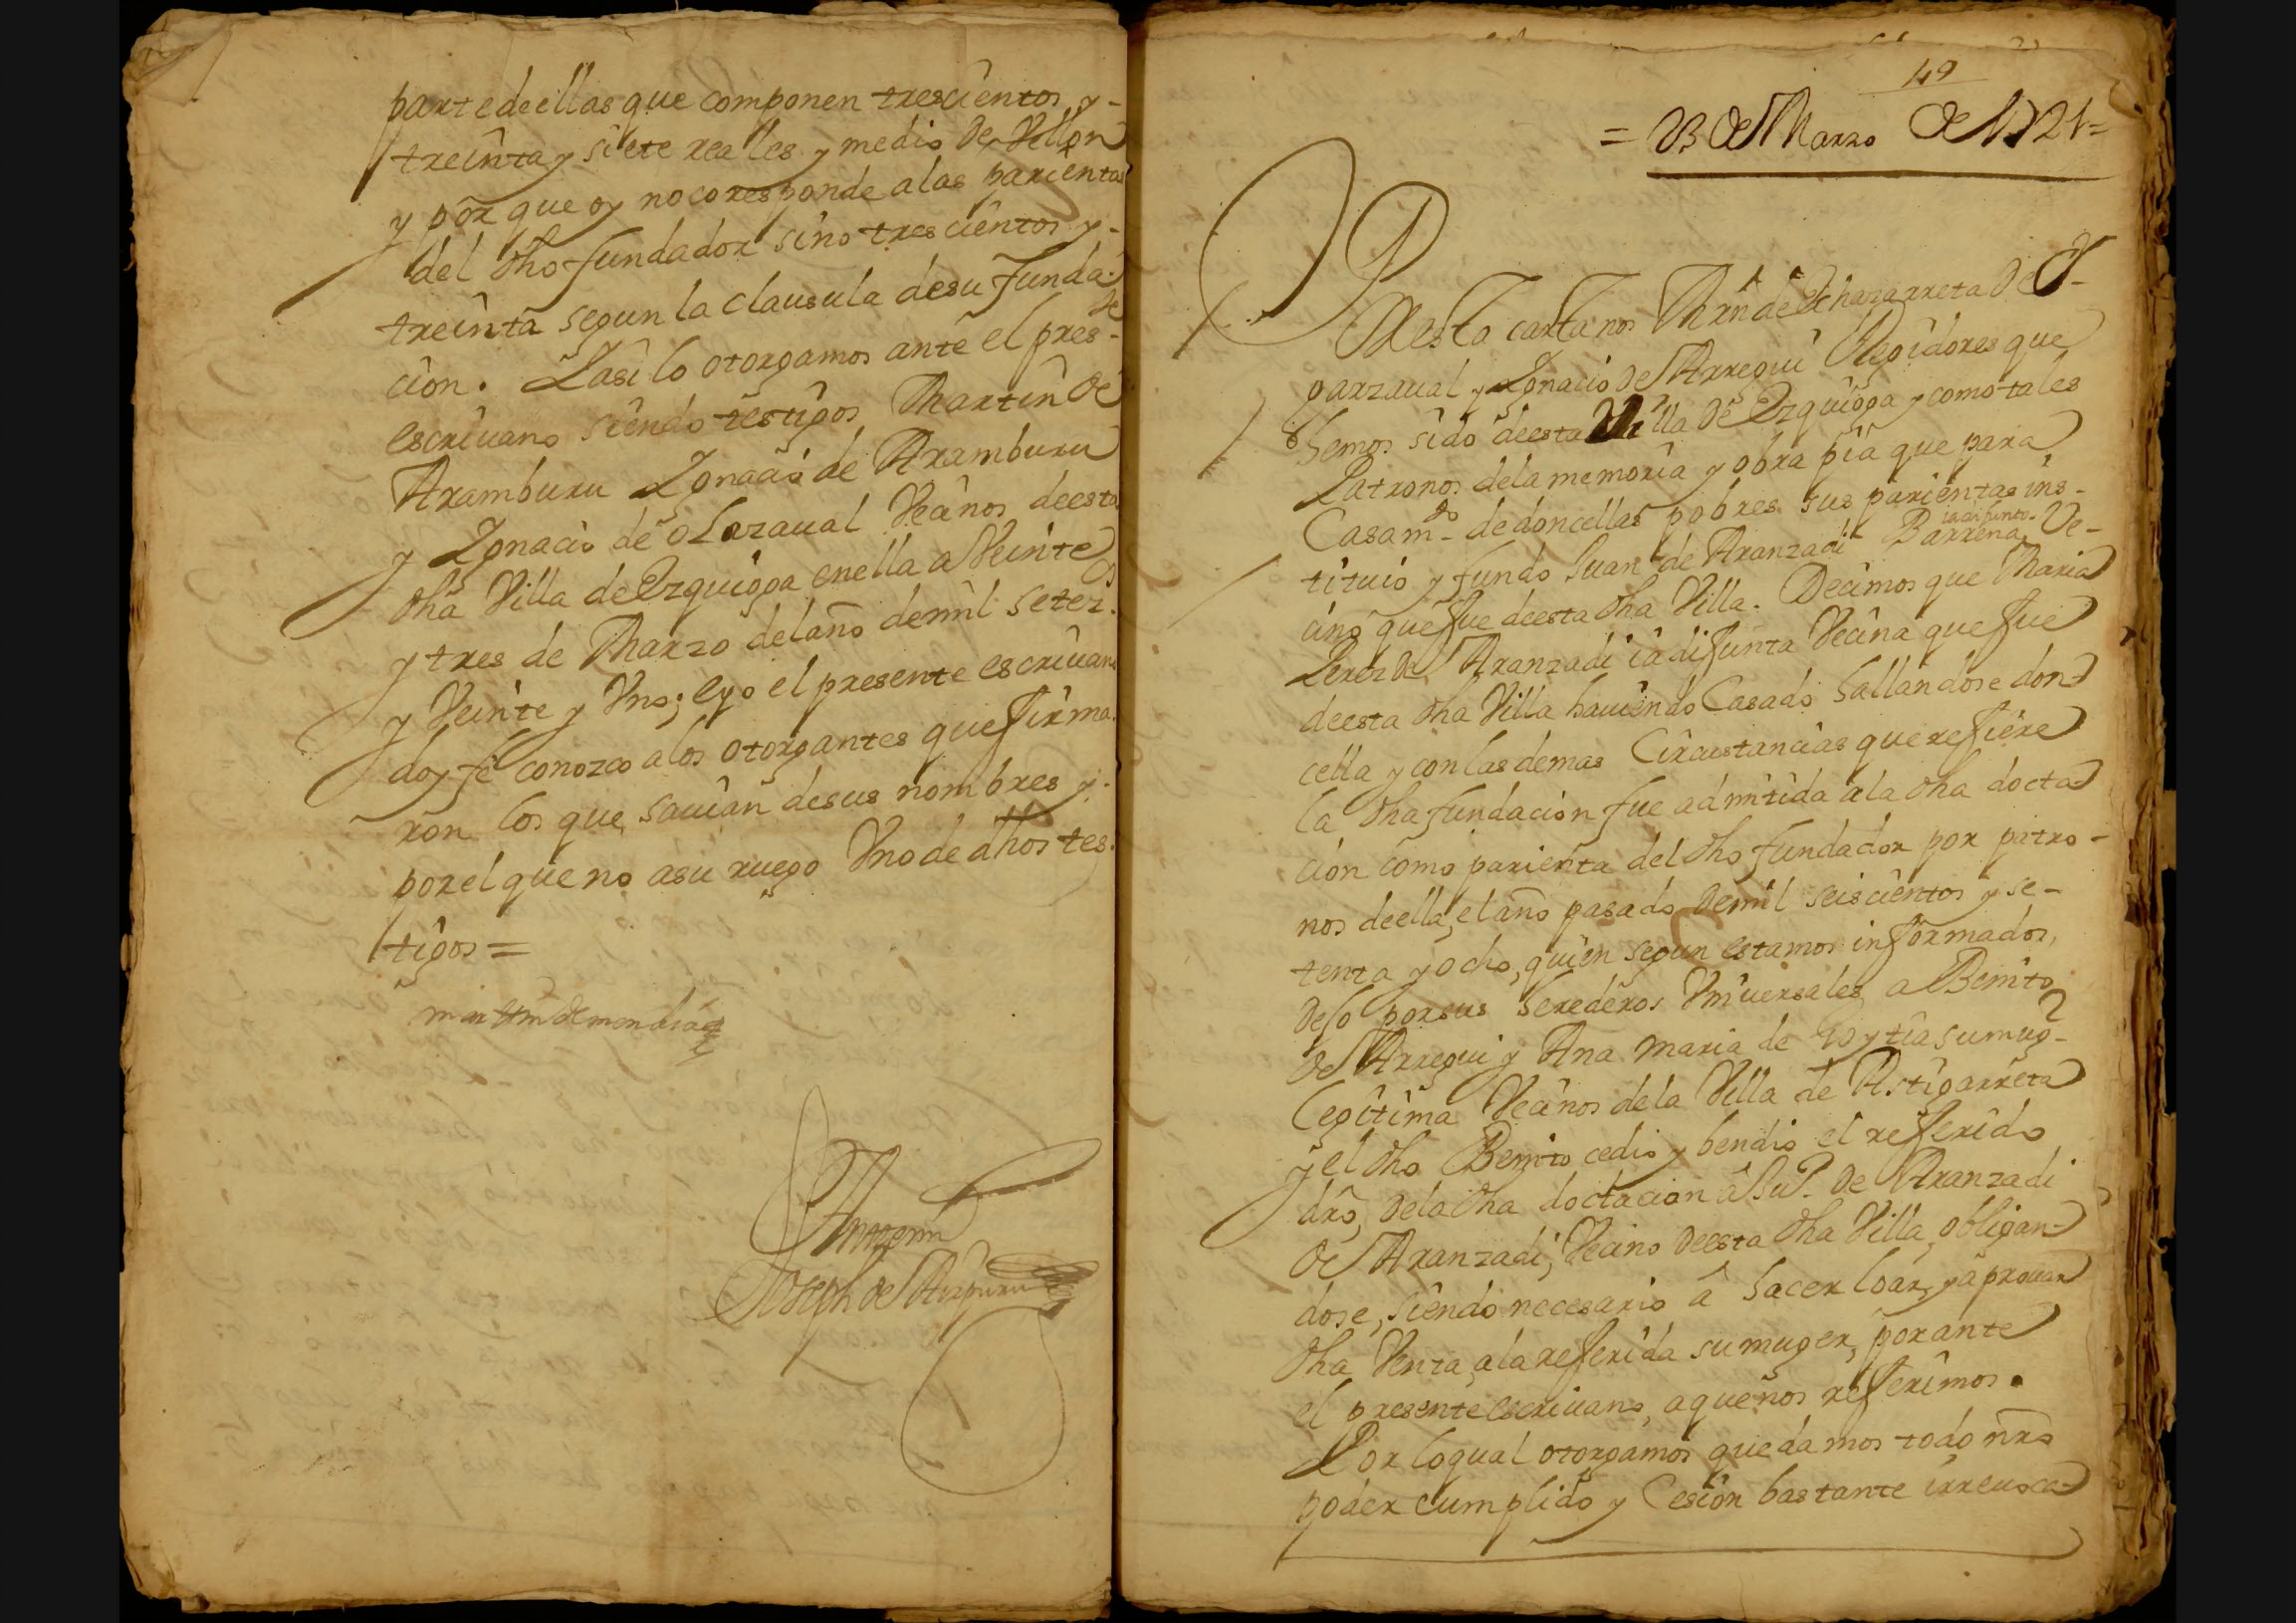 parte de ellas que componen trescientos y -
treinta y siete reales y medio de Vellon
y por que oy no coresponde a las parientas
del dho fundador sino trescientos y -
treinta segun la clausula de su funda-
cion. Y asi lo otorgamos ante el pres.te
escriuano siendo testigos Martin de
Aramburu Ygnacio de Aramburu
y Ygnacio de olazaual Vecinos de esta
dha Villa de Ezquioga en ella a Veinte
y tres de Marzo del año de mil setez.os
y Veinte y Vno; e yo el presente escriuano
doy fe conozco a los otorgantes que firma-
ron los que sauian de sus nombres y -
por el que no a su ruego Vno de dhos tes-
tigos =
martin de mendia
Ante mi
Joseph de Aizpuru
49
= 23 de Marzo de 1721 =
Por esta carta nos Mrn de Echazarreta de Y-
parzaual y Ygnacio de Arregui Regidores que
hemos sido de esta Villa de Ezquioga y como tales
Patronos de la memoria y obra pia que para
Casam.to de doncellas pobres sus parientas ins-
tituió y fundo Juan de Aranzadi Barrena ia difunto Ve-
cino que fue de esta dha Villa. Decimos que Maria
Perez de Aranzadi ia difunta Vecina que fue
de esta dha Villa hauiendo Casado hallandose don-
cella y con las demas Circustancias que refiere
la dha fundacion fue admitida a la dha docta-
cion como parienta del dho fundador por patro-
nos de ella, el año pasado de mil seiscientos y se-
tenta y ocho, quien segun estamos informados,
dejo por sus herederos Vniuersales a Benito
de Arregui y Ana Maria de Goytia su mug.r
legitima Vecinos de la Villa de Astigarreta
y el dho Benito cedio y bendio el referido
dro, de la dha doctacion a Ju.o de Aranzadi
de Aranzadi, Vecino de esta dha Villa, obligan-
dose, siendo necesario â hacer loar, y aprouar
dha Venta, a la referida su muger, por ante
el presente escriuano, a que nos referimos.
Por lo qual otorgamos que damos todo nro
poder cumplido y Cesion bastante irreuoca-